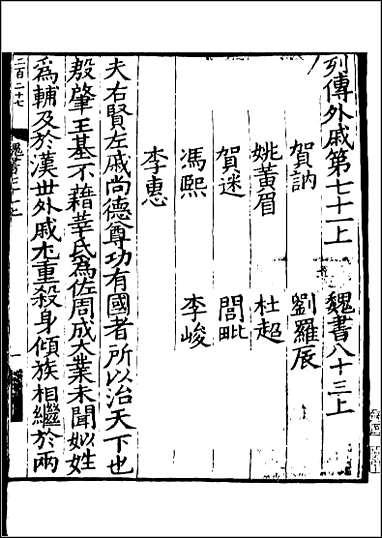 列傳外戚第七十一上 魏書八十三上
賀訥 劉羅辰
姚黃眉 杜超
賀迷 閭毗
馮熙 李峻
李惠
夫右賢左戚尚德尊功有國者所以治天下也
殷肇王基不藉莘氏為佐周成大業未聞姒姓
為輔及於漢世外戚尤重殺身傾族相繼於兩
二百二十七
一